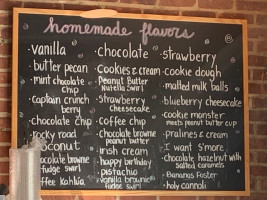 homemade flavors
·vanilla
·butter pecan
·mint chocolate
chip
·captain crunch
berry
·chocolate chip
·rocky road
coconut
chocolate brownie
fudge swirl
coffee kahlua
·chocolate
·Cookies & cream
·Peanut Butter
Nutella Swirl
·Strawberry
Cheesecake
·Coffee chip
·Chocolate brownie
peanut butter
·irish cream
·happy birthday
·pistachio
·vanilla brownie
fudge swirl
·strawberry
·cookie dough
·malted milk balls
·blueberry cheesecake
·cookie monster
meets peanut butter cup
·pralines & cream
·I want S'more
·chocolate hazelnut with
salted caramel
·Bananas Foster
·holy cannoli